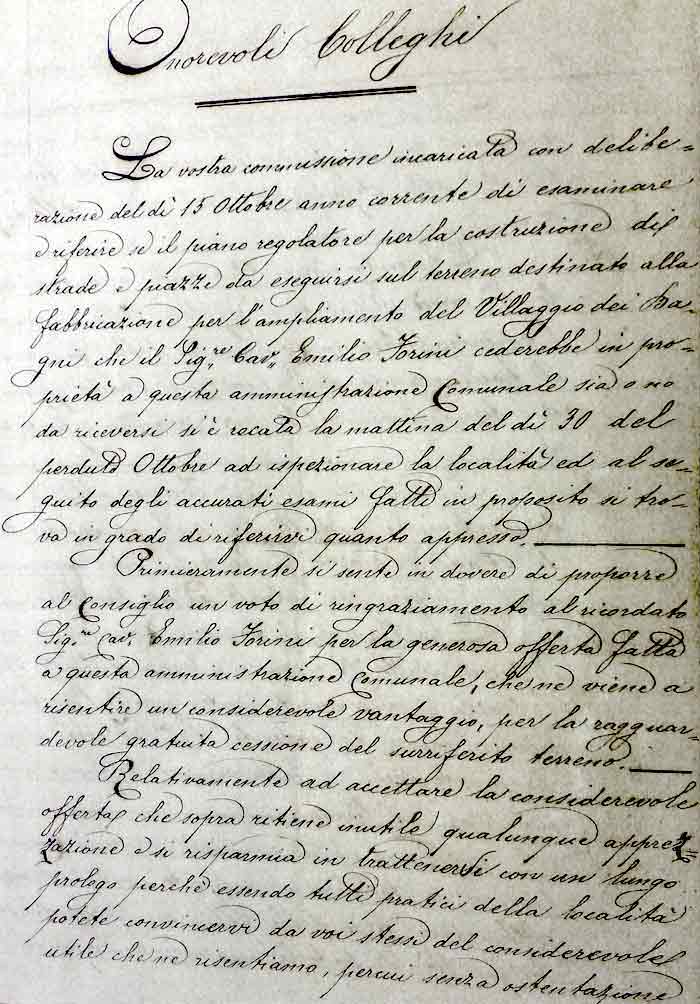 Onorevoli Colleghi
La vostra commissione incaricata con delibe=
razione del dì 15 Ottobre anno corrente di esaminare
e riferire se il piano regolatore per la costruzione di
strade e piazze da eseguirsi sul terreno destinato alla
fabbricazione per l'ampliamento del Villaggio dei Ba-
gni che il Sig.re Cav. Emilio Torini cederebbe in pro-
prietà a questa amministrazione Comunale sia o no
da riceversi si è recata la mattina del dì 30 del
perduto Ottobre ad ispezionare la località ed al se-
guito degli accurati esami fatti in proposito si tro-
va in grado di riferirvi quanto appresso.
Primieramente si sente in dovere di proporre
al Consiglio un voto di ringraziamento al ricordato
Sig.re Cav. Emilio Torini per la generosa offerta fatta
a questa amministrazione Comunale, che ne viene a
risentire un considerevole vantaggio, per la ragguar-
devole gratuita cessione del surriferito terreno.
Relativamente ad accettare la considerevole
offerta che sopra ritiene inutile qualunque apprez=
zazione e si risparmia in trattenervi con un lungo
prolego perché essendo tutti pratici della località
potete convincervi da voi stessi del considerevole
utile che ne risentiamo, percui senza ostentazione